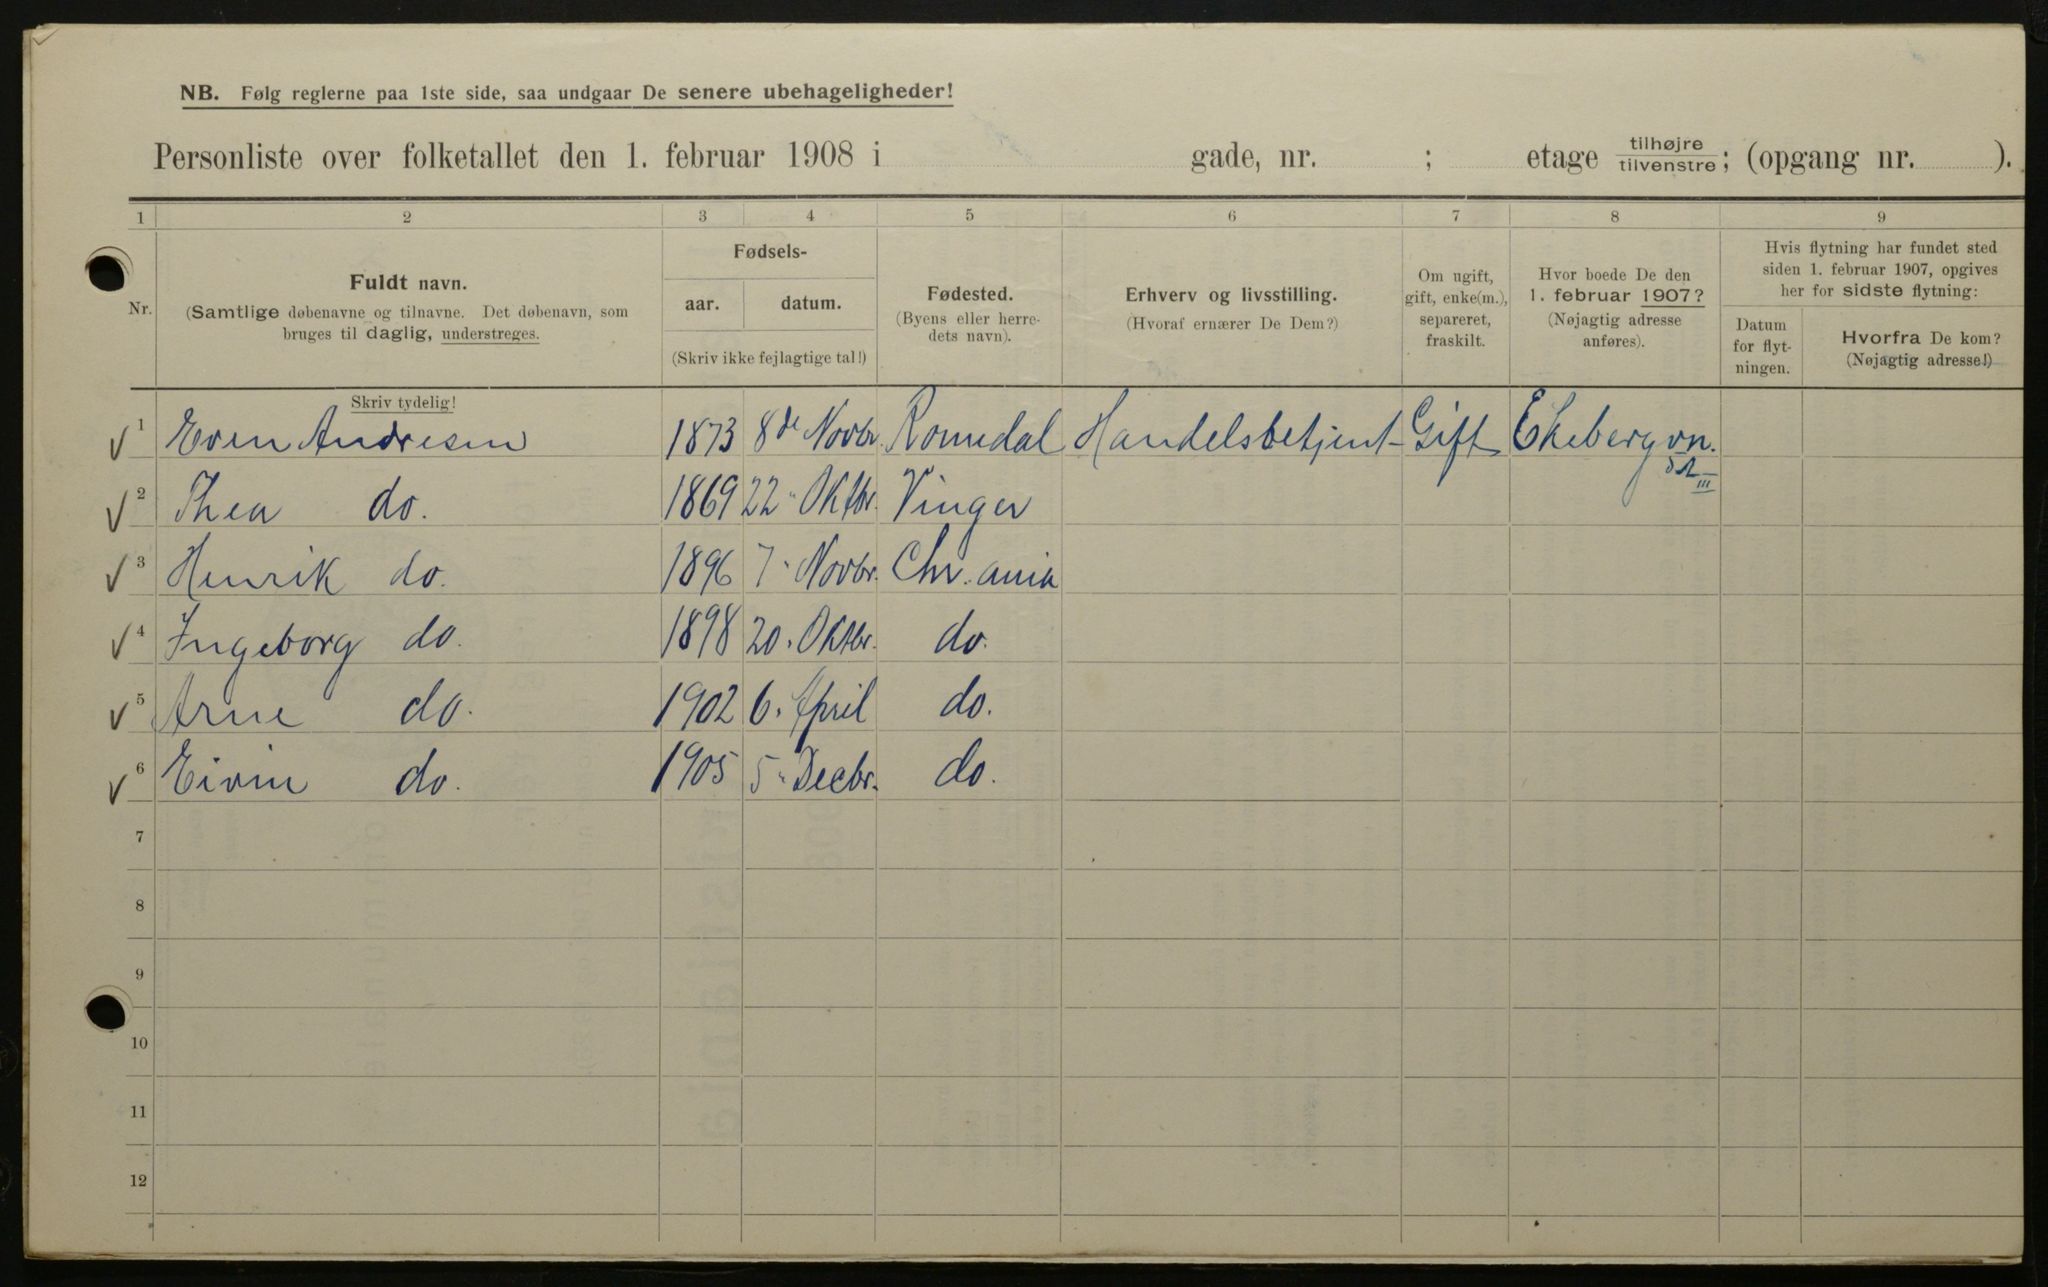 NB. Følg reglerne paa 1ste side, saa undgaar De senere ubehageligheder!
Personliste over folketallet den 1. februar 1908 i gade, nr. ; etage tilhøjre tilvenstre; (opgang nr. ).
1 2 3 4 5 6 7 8 9
Nr.
Fuldt navn.
(Samtlige døbenavne og tilnavne. Det døbenavn, som
bruges til daglig, understreges.
Skriv tydelig!
Fødsels-
aar. datum.
(Skriv ikke fejlagtige tal!)
Fødested.
(Byens eller herre-
dets navn).
Erhverv og livsstilling.
(Hvoraf ernærer De Dem?)
Om ugift,
gift, enke(m.),
separeret,
fraskilt.
Hvor boede De den
1. februar 1907?
(Nøjagtig adresse
anføres).
Hvis flytning har fundet sted
siden 1. februar 1907, opgives
her for sidste flytning:
Datum
for flyt-
ningen.
Hvorfra De kom?
(Nøjagtig adresse!)
1 Even Andresen 1873 8de Novbr. Romedal Handelsbetjent Gift Ekebergvn.
III
2 Thea do. 1869 22 Oktbr. Vinger
3 Henrik do. 1896 7 Novbr. Chr. ania
4 Ingeborg do. 1898 20. Oktbr. do.
5 Arne do. 1902 6. April do.
6 Eivin do. 1905 5 Decbr. do.
7
8
9
10
11
12